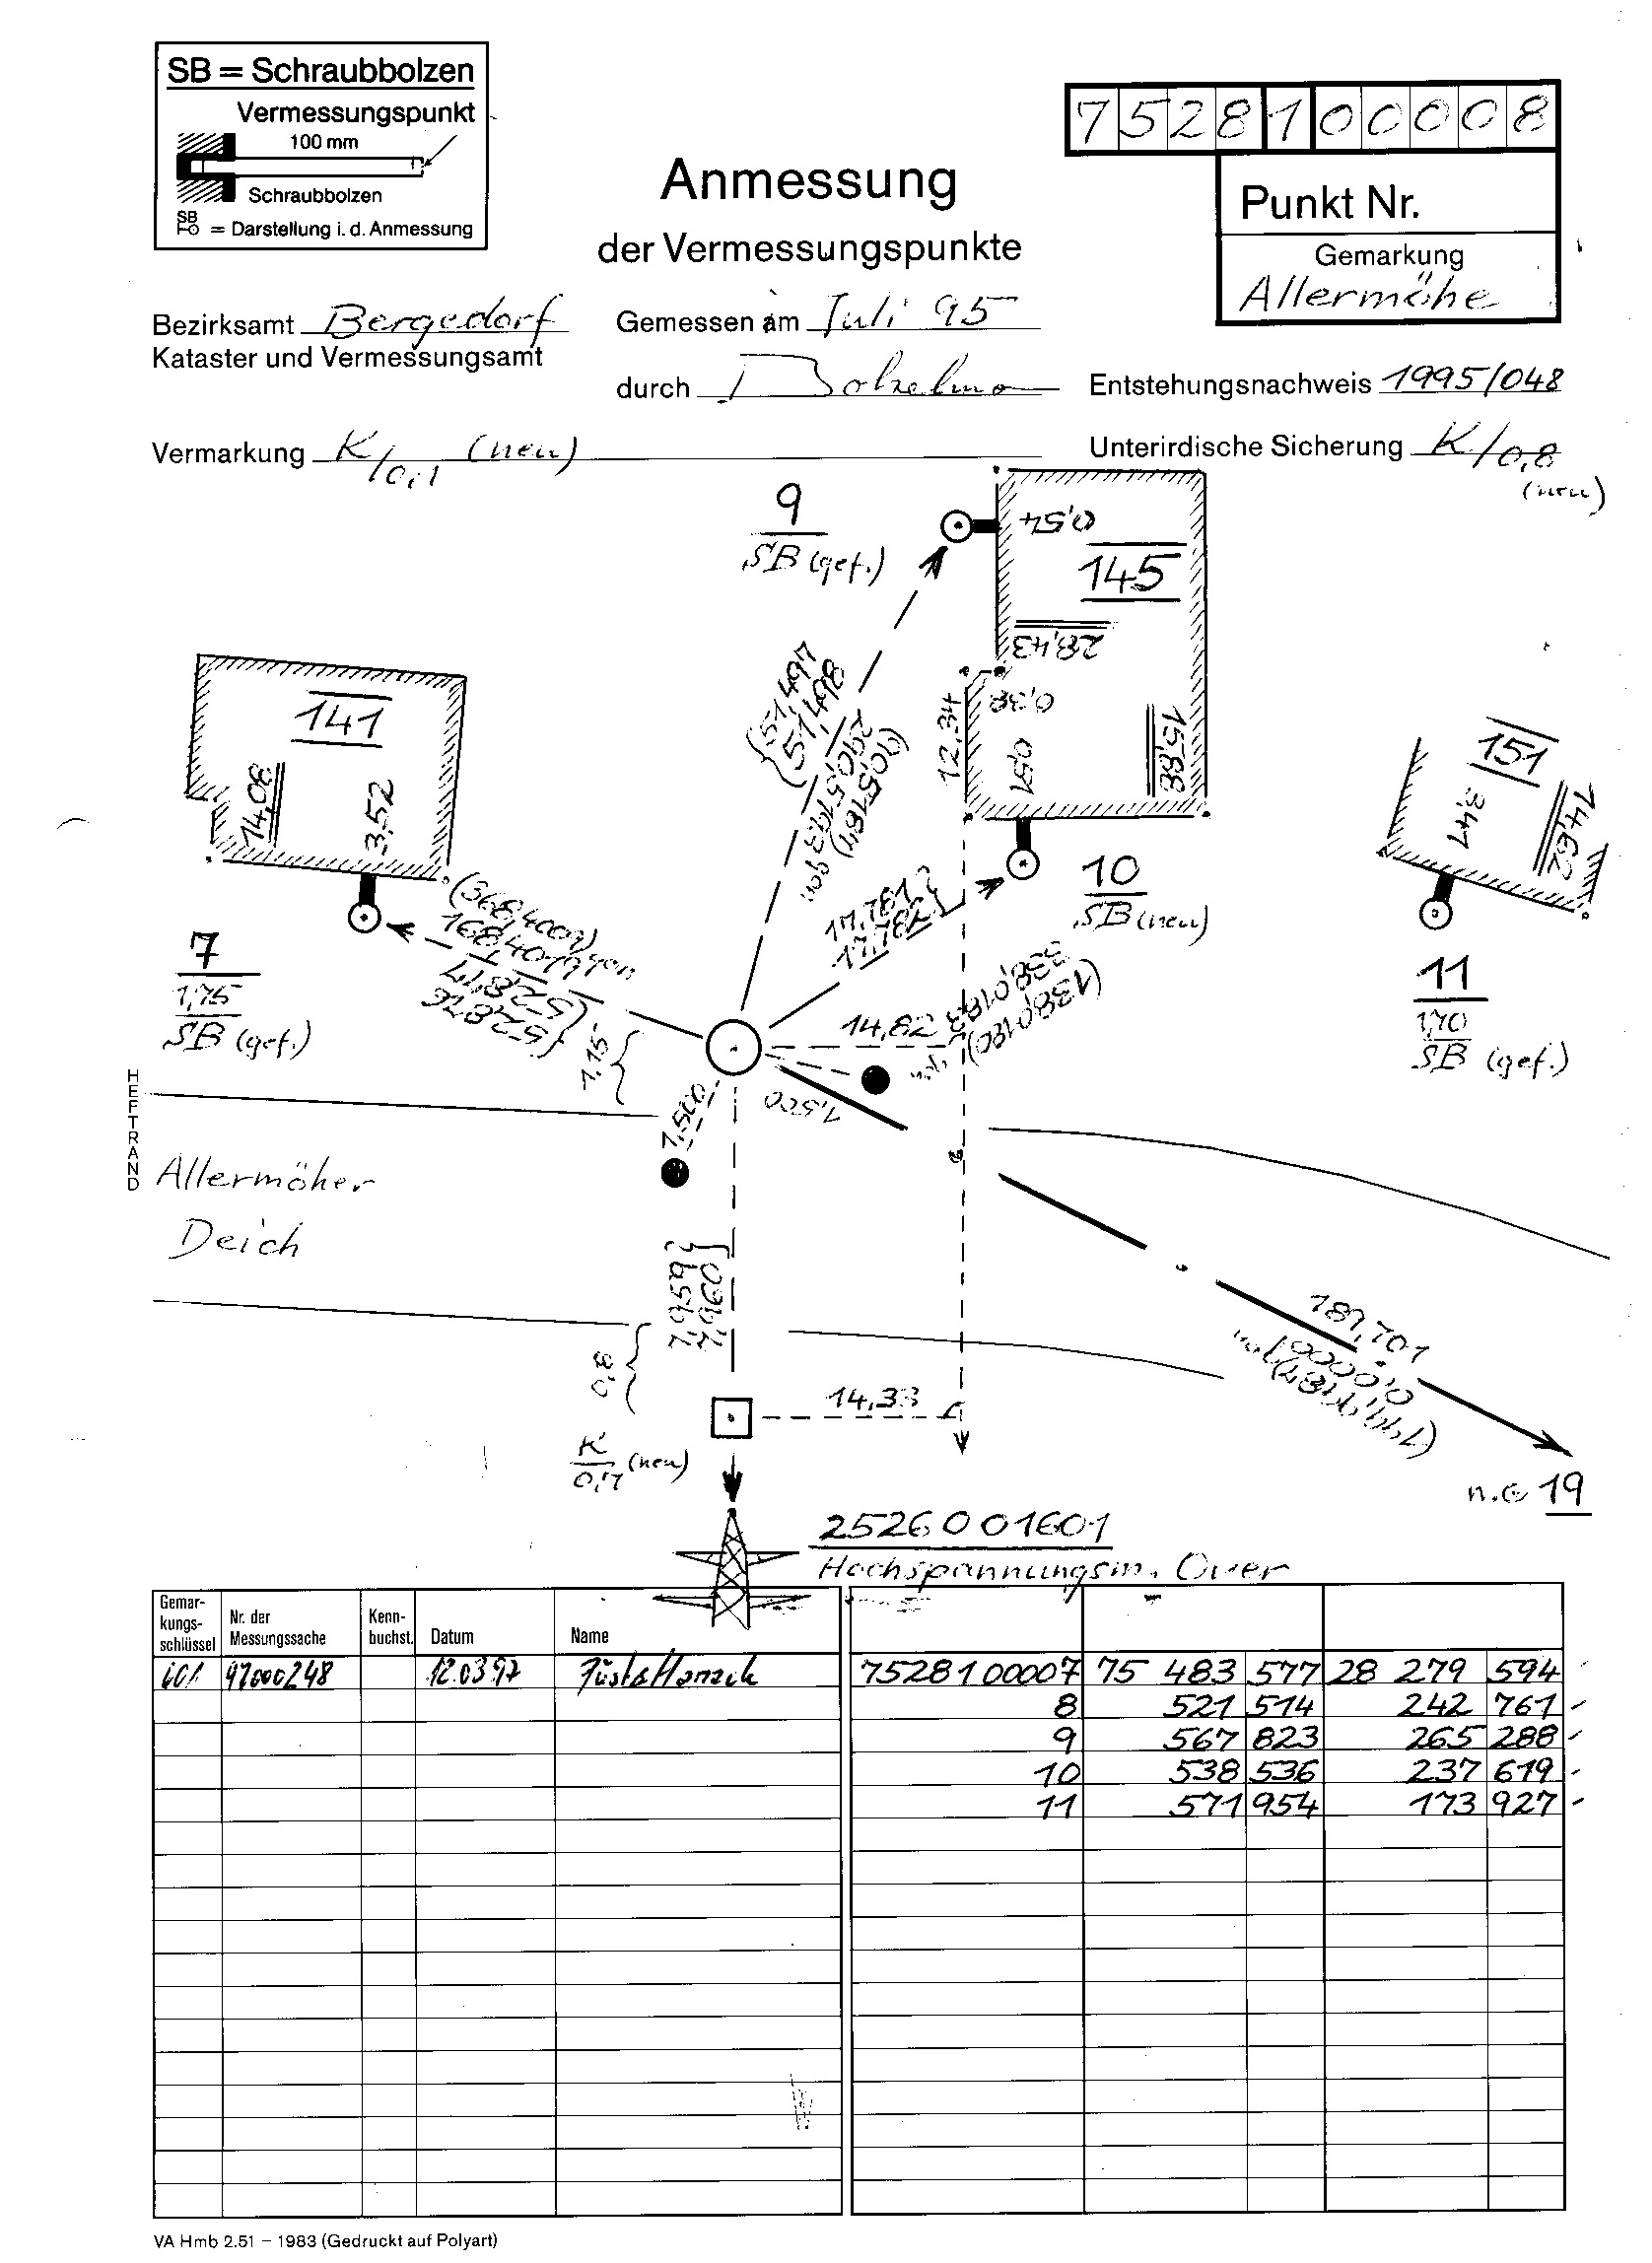 SB = Schraubbolzen
Vermessungspunkt
100 mm
Schraubbolzen
SB
= Darstellung i. d. Anmessung
Anmessung
der Vermessungspunkte
7528100008
Punkt Nr.
Gemarkung
Allermöhe
Bezirksamt Bergedorf
Kataster und Vermessungsamt
Gemessen am Juli 95
durch
Entstehungsnachweis 1995/048
Vermarkung K/0,1 (neu)
Unterirdische Sicherung K/0,8
(neu)
9
SB (gef.)
0,54
145
28,43
0,38
12,34
0,91
15,88
141
14,08
3,52
151
3,47
14,62
(51,497
51,498
290,5193 gon
(90,5187)
17,781
17,782
10
SB (neu)
7
1,75
SB (gef.)
(368,4009)
168,4019 gon
52,877
52,876
1,15
11
1,70
SB (gef.)
14,82
338,0183 gon
(138,0180)
1,500
1,500
HEFTRAND
Allermöher
Deich
7,659
7,660
0,8
14,33
K
0,7 (neu)
189,701
0,0000 gon
(199,9987)
n.G 19
2526001601
Hochspannungsm. Over
Gemar-
kungs-
schlüssel
Nr. der
Messungssache
Kenn-
buchst.
Datum
Name
601 97000248 12.03.97
75281 00007 75 483 577 28 279 594
8 521 514 242 761
9 567 823 265 288
10 538 536 237 619
11 571 954 173 927
VA Hmb 2.51 – 1983 (Gedruckt auf Polyart)